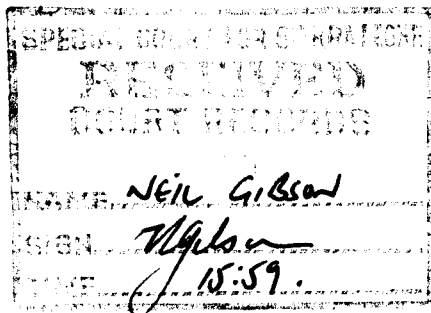 SPECIAL COURT FOR SIERRA LEONE
RECEIVED
COURT RECORDS
NAME NEIL GIBSON
SIGN NGibson
TIME 15:59.